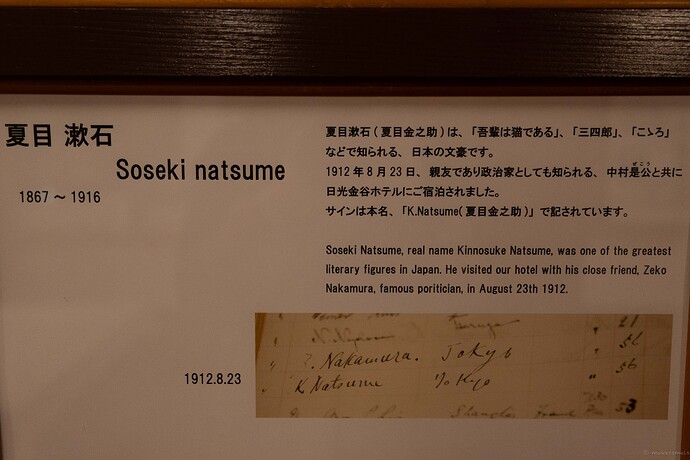 夏目 漱石
Soseki natsume
1867 ～ 1916
夏目漱石 ( 夏目金之助 ) は、「吾輩は猫である」、「三四郎」、「こゝろ」
などで知られる、日本の文豪です。
1912 年 8 月 23 日、親友であり政治家としても知られる、中村是公と共に
ぜこう
日光金谷ホテルにご宿泊されました。
サインは本名、「K.Natsume( 夏目金之助 )」で記されています。
Soseki Natsume, real name Kinnosuke Natsume, was one of the greatest
literary figures in Japan. He visited our hotel with his close friend, Zeko
Nakamura, famous poritician, in August 23th 1912.
1912.8.23
21
" 56
Nakamura. Tokyo " 56
K Natsume Tokyo "
53